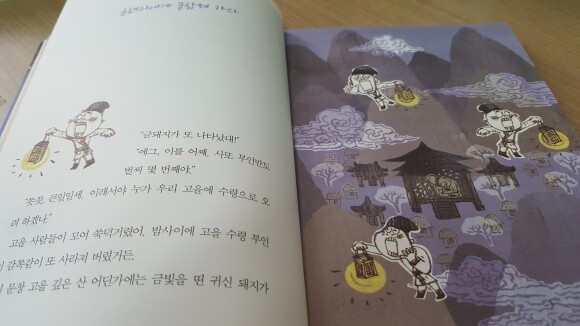 "금돼지가 또 나타났대!"
"에그, 이를 어째. 사또 부인만도
벌써 몇 번째야."
"쯧쯧, 큰일일세. 이래서야 누가 우리 고을에 수령으로 오
려 하겠나."
고을 사람들이 모여 쑥덕거렸어. 밤사이에 고을 수령 부인
이 감쪽같이 또 사라져 버렸거든.
문창 고을 깊은 산 어딘가에는 금빛을 띤 귀신 돼지가